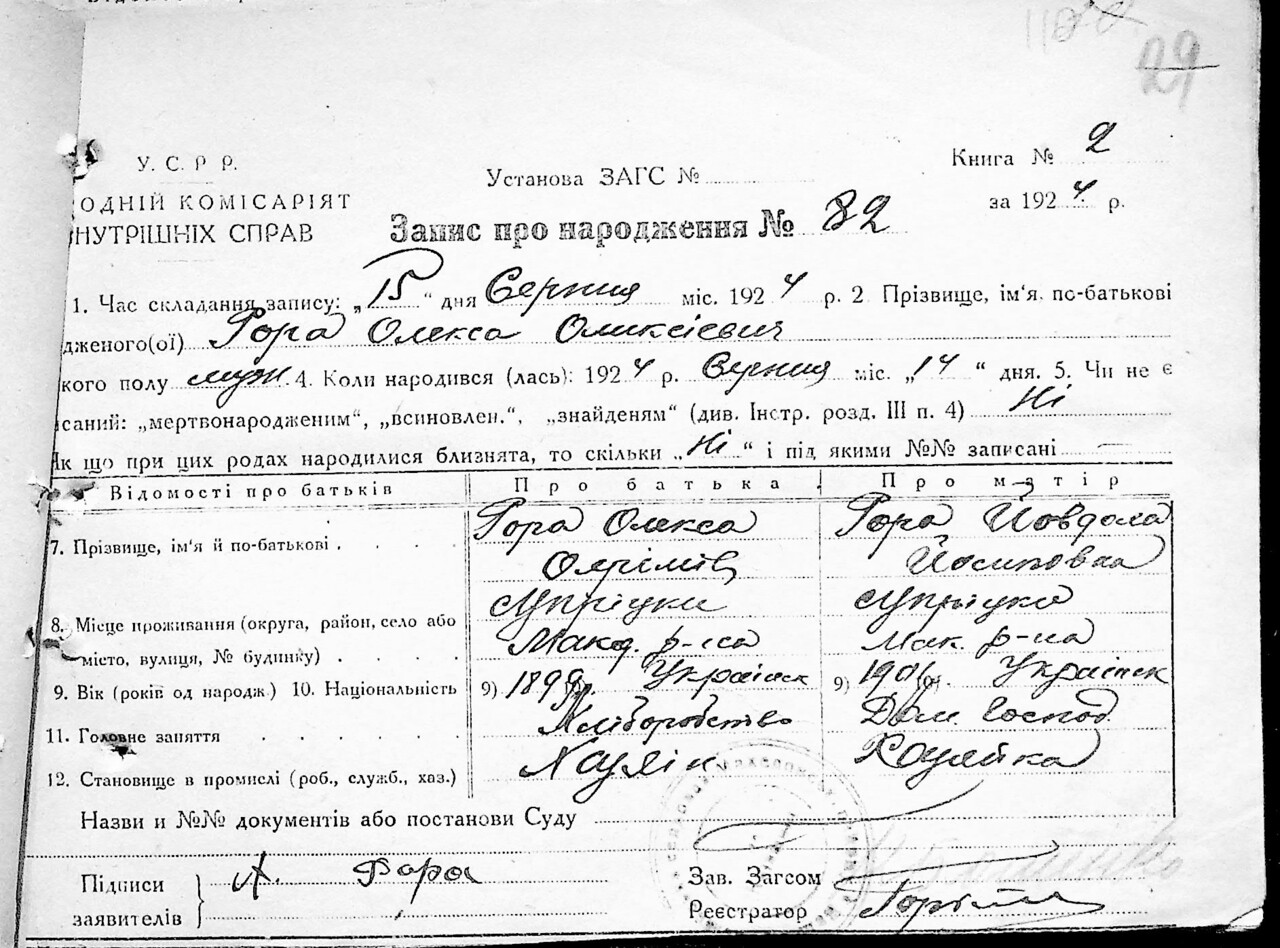 29
У. С. Р Р.
ОДНІЙ КОМІСАРІЯТ
НУТРІШНІХ СПРАВ
Установа ЗАГС №
Книга № 2
за 1924 р.
Запис про народження № 82
1. Час складання запису: „15“ дня Серпня міс. 1924 р. 2 Прізвище, ім'я, по-батькові
дженого(ої) Рора Олекса Оликсієвич
кого полу муж. 4. Коли народився (лась): 1924 р. Серпня міс. „14“ дня. 5. Чи не є
саний: „мертвонародженим“, „всиновлен.“, „знайденям“ (див. Інстр. розд. III п. 4) Ні
Як що при цих родах народилися близнята, то скільки „Ні“ і під якими №№ записані —
Відомості про батьків Про батька Про матір
7. Прізвище, ім'я й по-батькові . Рора Олекса Рора Йовдола
Йосиповна
8. Місце проживання (округа, район, село або
Мак. р-на
місто, вулиця, № будинку)
9. Вік (років од народж.) 10. Національність 9) 1899 Українск 9) Українск
11. Головне заняття Хліборобство Дом. Господ.
12. Становище в промислі (роб., служб., хаз.) Хазяїн Хазяйка
Назви и №№ документів або постанови Суду
Підписи
заявителів
А. Рора
Зав. Загсом
Реєстратор